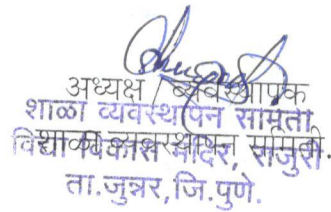 अध्यक्ष / व्यवस्थापक
शाळा व्यवस्थापन समिती
शाळा व्यवस्थापन समिती
विद्या विकास मंदिर, राजुरी.
ता.जुन्नर,जि.पुणे.